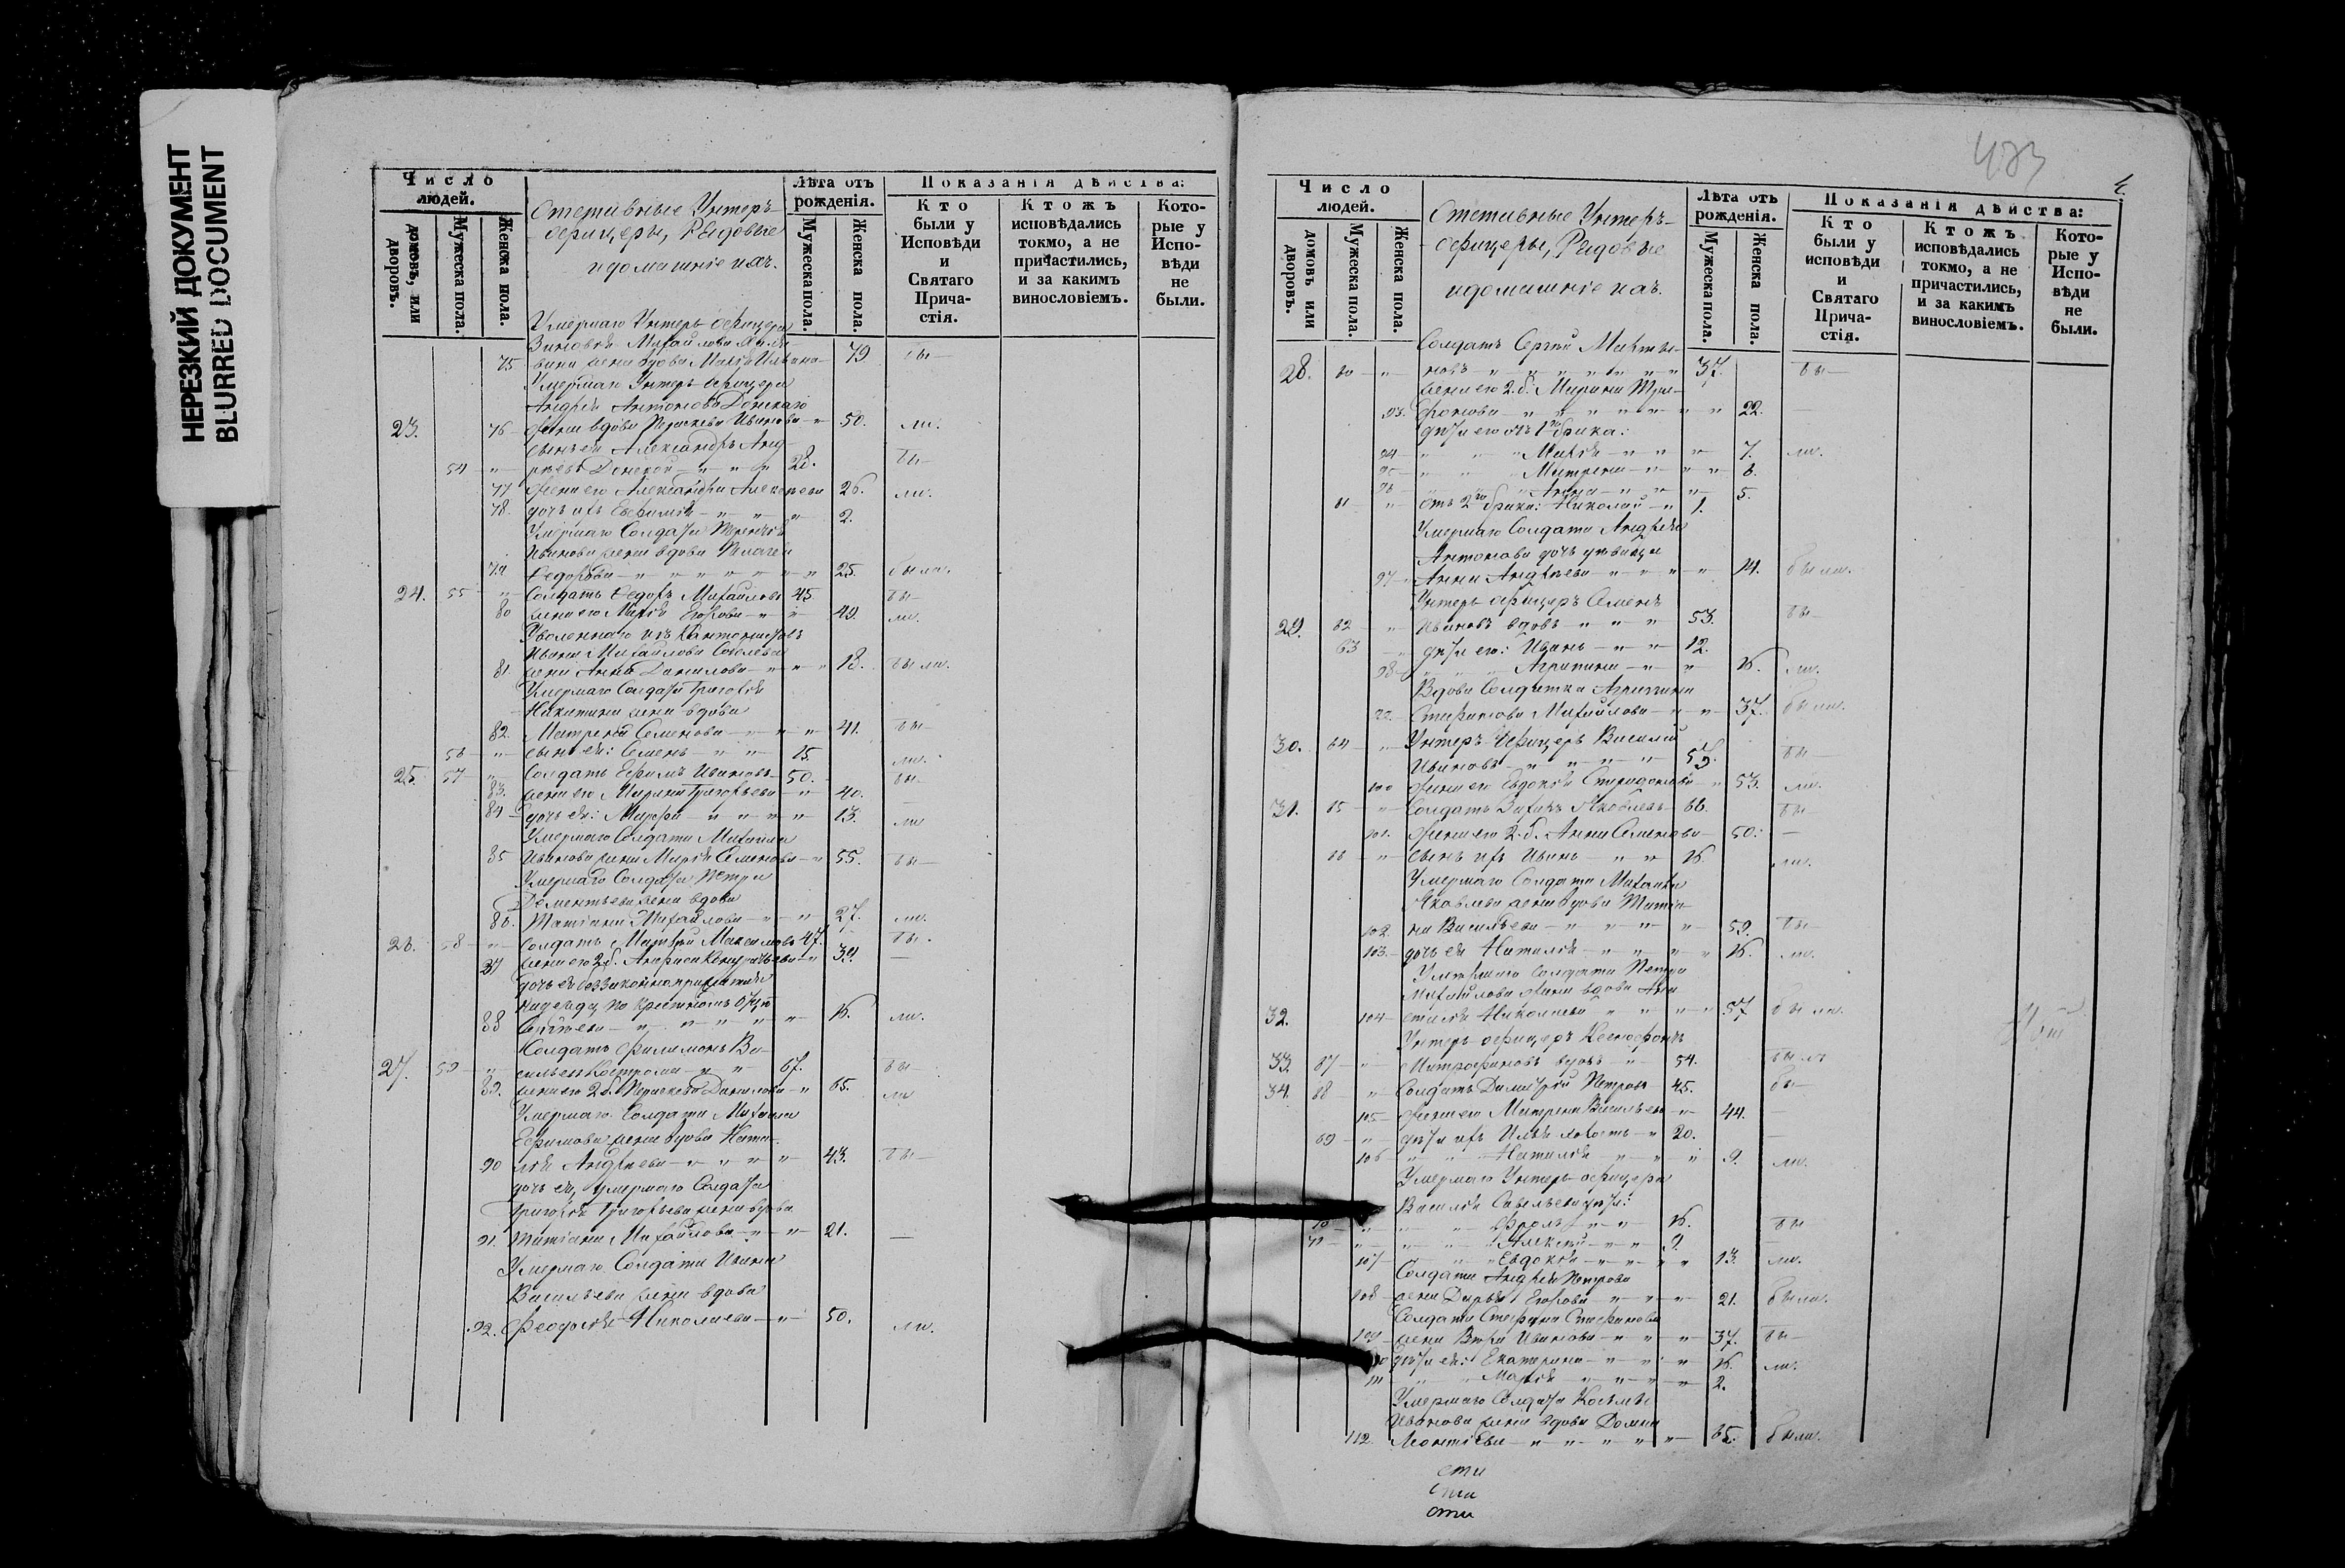 НЕРЕЗКИЙ ДОКУМЕНТ
BLURRED DOCUMENT
Число людей.
домовъ, или дворовъ.
Мужеска пола.
Женска пола.
Отставные Унтеръ-
офицеры, Рядовые
и домашніе ихъ.
Лѣта отъ рожденія.
Мужеска пола.
Женска пола.
Показанія дѣйства:
Кто были у Исповѣди и Святаго Прича-стія.
Ктожъ исповѣдались токмо, а не причастились, и за какимъ винословіемъ.
Кото-рые у Испо-вѣди не были.
Умершаго Унтеръ офицера
75 79. бы—
Умершаго Унтеръ офицера
Андрея Антонова Донскаго
23. 76 жена вдова Иванова 50. ли.
сынъ ея Александръ Анд-
54 " реевъ Донской " " " 28. бы—
77 жена его Александра Алексѣева 26. ли.
78. дочь ихъ Евфимія " " " 2.
Умершаго Солдата Терентія
Иванова жена вдова Пелагея
79 Федорова " " " " " 25. были.
24. 55 " Солдатъ Федоръ Михайловъ 45. бы—
80 жена его Марія Егорова " " 49. ли.
Уволеннаго изъ Кантонистовъ
Ивана Михайлова
81 жена Анна Данилова " " 18. были.
Умершаго Солдата Григорія
Никитина жена вдова
82. Матрена Семенова " " " 41. бы—
56 " сынъ ея: Семенъ " " 15. ли.
25. 57 " Солдатъ Ефимъ Ивановъ 50. бы—
83. жена его Марина Григорьева " 40. —
84 дочь ея: Марфа " " " " 13. ли
Умершаго Солдата Михаила
85 Иванова жена Марія Семенова " 55. бы—
Умершаго Солдата Петра
Дементьева жена вдова
86. Татіана Михайлова " " 27. ли.
26. 58 " Солдатъ Матвѣй Максимовъ 47. бы.
87 жена его 2б. 39. —
дочь ея незаконноприжитая
Надежда, по крестномъ отцѣ
88 Сергѣева " " " " " 16. ли.
Солдатъ Филимонъ Ва-
27. 59 " сильевъ Кострома " " 67. бы—
89. жена его 2б. Параскева Данилова " 65. ли
Умершаго Солдата Михаила
Ефимова жена вдова Ната-
90 лія Андреева " " " " 43. бы—
дочь ея, умершаго Солдата
Григорія Григорьева жена вдова
91. Татіана Михайлова " " 21. —
Умершаго Солдата Ивана
Васильева жена вдова
92. Феодосія Николаева " 50. ли.
433
4.
Число людей.
домовъ или дворовъ.
Мужеска пола.
Женска пола.
Отставные Унтеръ-
офицеры, Рядовые
и домашніе ихъ.
Лѣта отъ рожденія.
Мужеска пола.
Женска пола.
Показанія дѣйства:
Кто были у исповѣди и Святаго Прича-стія.
Ктожъ исповѣдались токмо, а не причастились, и за какимъ винословіемъ.
Кото-рые у Испо-вѣди не были.
Солдатъ Сергѣй Марты-
28. 60 " новъ " " " " " " 37. бы—
жена его 2.б. Марина Три-
93. фонова " " " " " " 22. —
дѣти его отъ 1го брака:
94 " " " Марія " " " 7. ли.
95 " " " Матрена " " " 6.
96 " " " Анна " " " 5.
61 " отъ 2го брака: Николай " 1.
Умершаго Солдата Андрея
Антонова дочь дѣвица
97 Анна Андреева " " " " 14. были.
Унтеръ офицеръ Семенъ
29. 62 " Ивановъ вдовъ " " " 53. бы—
63 " дѣти его: Иванъ " " 12.
98 " " " Агрипина " " " 16. ли.
Вдова Солдатка Агриппина
99. Стефанова Михайлова " " 37. были.
30. 64 " Унтеръ-Офицеръ Василій
Ивановъ " " " " " 59. бы—
100 жена его Евдокія Спиридонова " 53. ли.
31. 65 " Солдатъ Захаръ Яковлевъ 66. бы—
101. жена его 2.б. Анна Семенова 50. —
66 " сынъ ихъ Иванъ " " 16 ли.
Умершаго Солдата Михаила
Яковлева жена вдова Татіа-
102. на Васильева " " " " 59. бы
103. дочь ея Наталія " " " " 16. ли.
Умершаго Солдата Петра
Михайлова жена вдова Ана-
32. 104 стасія Николаева " " " " 57 были.
Унтеръ-офицеръ Ксенофонтъ
33. 67 " Митрофановъ вдовъ " 54. былъ
34. 68 " Солдатъ Димитрій Петровъ 45. бы—
105 жена его Матрена Васильева " 44. —
69 " дѣти ихъ Илья холостъ " 20. —
106 " " " Наталія " " " 9. ли.
Умершаго Унтеръ-офицера
Василія Савельева дѣти:
70 " " " Фролъ " " 16. бы
71 " " " Алексѣй " " 9. —
107 " " " Евдокія " " " " 13. ли.
Солдата Андрея Петрова
108 жена Дарья Егорова " " " 21. были.
Солдата Стефана Стефанова
109 жена Вѣра Иванова " " " 37. бы—
110 дѣти ея: Екатерина " " " 16. ли.
111 " " " Марія " " " " 2.
Умершаго Солдата Космы
Иванова жена вдова Домна
112. Леонтіева " " " " " 65. были.